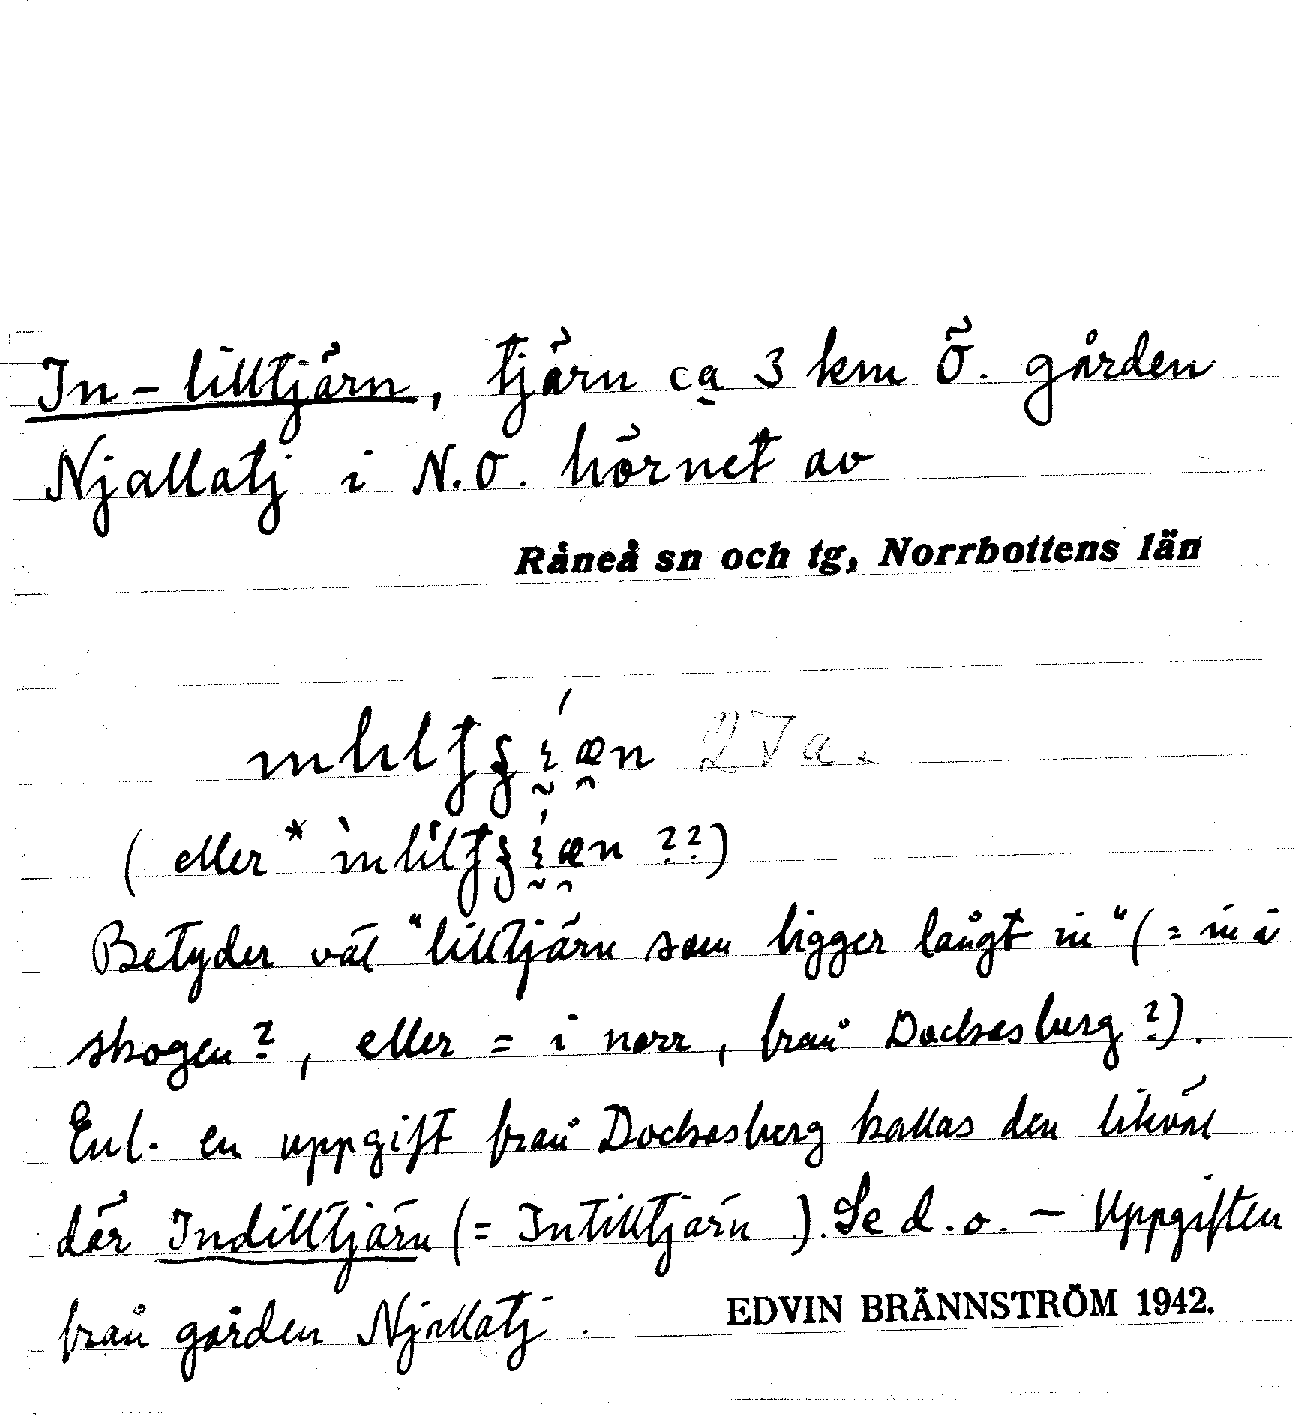 In-lilltjärn, tjärn ca 3 km Ö. gården
Njallatj i N.O. hörnet av
Råneå sn och tg, Norrbottens län
(eller ??)
Betyder väl "lilltjärn som ligger långt in" (= in i
skogen?, eller = i norr, från Dockasberg?).
Enl. en uppgift från Dockasberg kallas den likväl
där Indilltjärn (= Intilltjärn). Se d.o. – Uppgiften
från gården Njallatj.
EDVIN BRÄNNSTRÖM 1942.